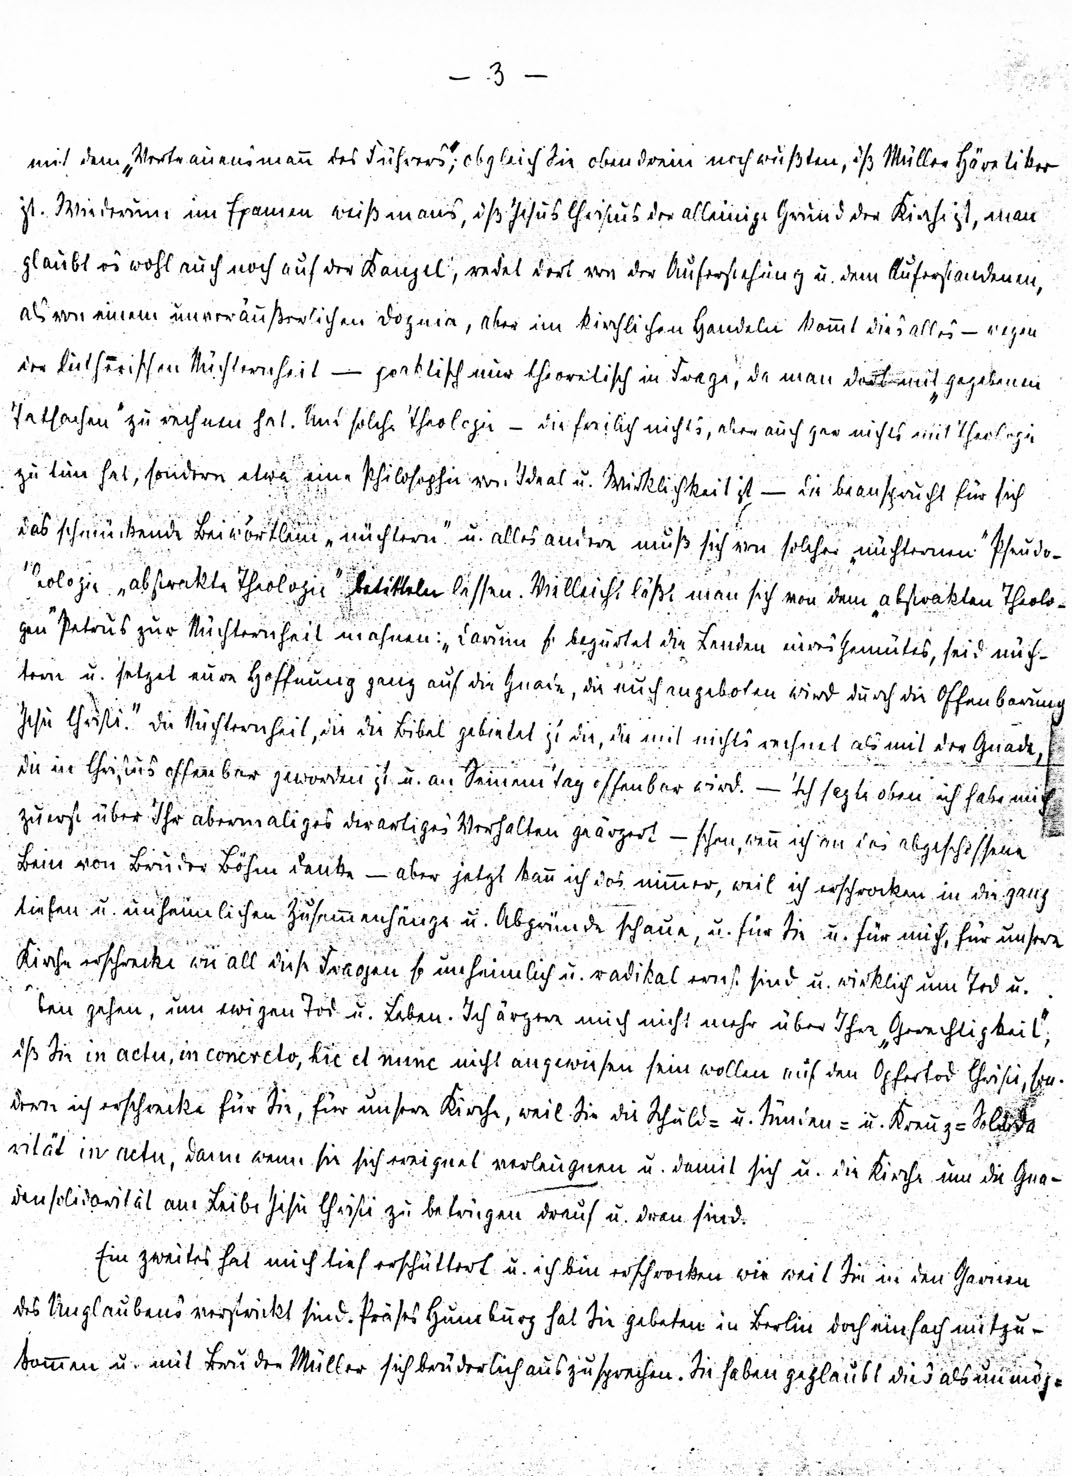 — 3 —
mit dem „Vertrauensmann des Führers“, obgleich Sie obendrein noch wußten, dß Müller Häretiker
ist. Wiederum: im Examen weiß mans, dß Jesus Christus der alleinige Grund der Kirche ist, man
glaubt es wohl auch noch auf der Kanzel, redet dort von der Auferstehung u. dem Auferstandenen,
als von einem unveräußerlichen Dogma, aber im kirchlichen Handeln kommt dies alles — wegen
der lutherischen Nüchternheit — praktisch nur theoretisch in Frage, da man dort mit „gegebenen
Tatsachen“ zu rechnen hat. Und solche Theologie — die freilich nichts, aber auch gar nichts mit Theologie
zu tun hat, sondern etwa eine Philosophie von Ideal u. Wirklichkeit ist — die beansprucht für sich
das schmückende Beiwörtlein „nüchtern“ u. alles andere muß sich von solcher „nüchternen“ Pseudo-
theologie „abstrakte Theologie“ betitteln lassen. Vielleicht läßt man sich von dem „abstrakten Theolo-
gen“ Petrus zur Nüchternheit mahnen: „Darum so begürtet die Lenden eures Gemütes, seid nüch-
tern u. setzet eure Hoffnung ganz auf die Gnade, die euch angeboten wird durch die Offenbarung
Jesu Christi.“ Die Nüchternheit, die die Bibel gebietet ist die, die mit nichts rechnet als mit der Gnade,
die in Christus offenbar geworden ist u. an Seinem Tag offenbar wird. — Ich sagte oben ich habe mich
zuerst über Ihr abermaliges derartiges Verhalten geärgert — schon, wenn ich an das abgeschossene
Bein von Bruder Böhm denke — aber jetzt kann ich das nimmer, weil ich erschrocken in die ganz
tiefen u. unheimlichen Zusammenhänge u. Abgründe schaue, u. für Sie u. für mich, für unsere
Kirche erschrecke wie all diese Fragen so unheimlich u. radikal ernst sind u. wirklich um Tod u.
Leben gehen, um ewigen Tod u. Leben. Ich ärgere mich nicht mehr über Ihre „Gerechtigkeit“,
dß Sie in actu, in concreto, hic et nunc nicht angewiesen sein wollen auf den Opfertod Christi, son-
dern ich erschrecke für Sie, für unsere Kirche, weil Sie die Schuld= u. Sünden= u. Kreuz=Solida
rität in actu, dann wenn sie sich ereignet verleugnen u. damit sich u. die Kirche um die Gna-
densolidarität am Leibe Jesu Christi zu betrügen drauf u. dran sind.
Ein zweites hat mich tief erschüttert u. ich bin erschrocken wie weit Sie in den Garnen
des Unglaubens verstrickt sind. Präses Humburg hat Sie gebeten in Berlin doch einfach mitzu-
kommen u. mit Bruder Müller sich brüderlich auszusprechen. Sie haben geglaubt dies als unmög=